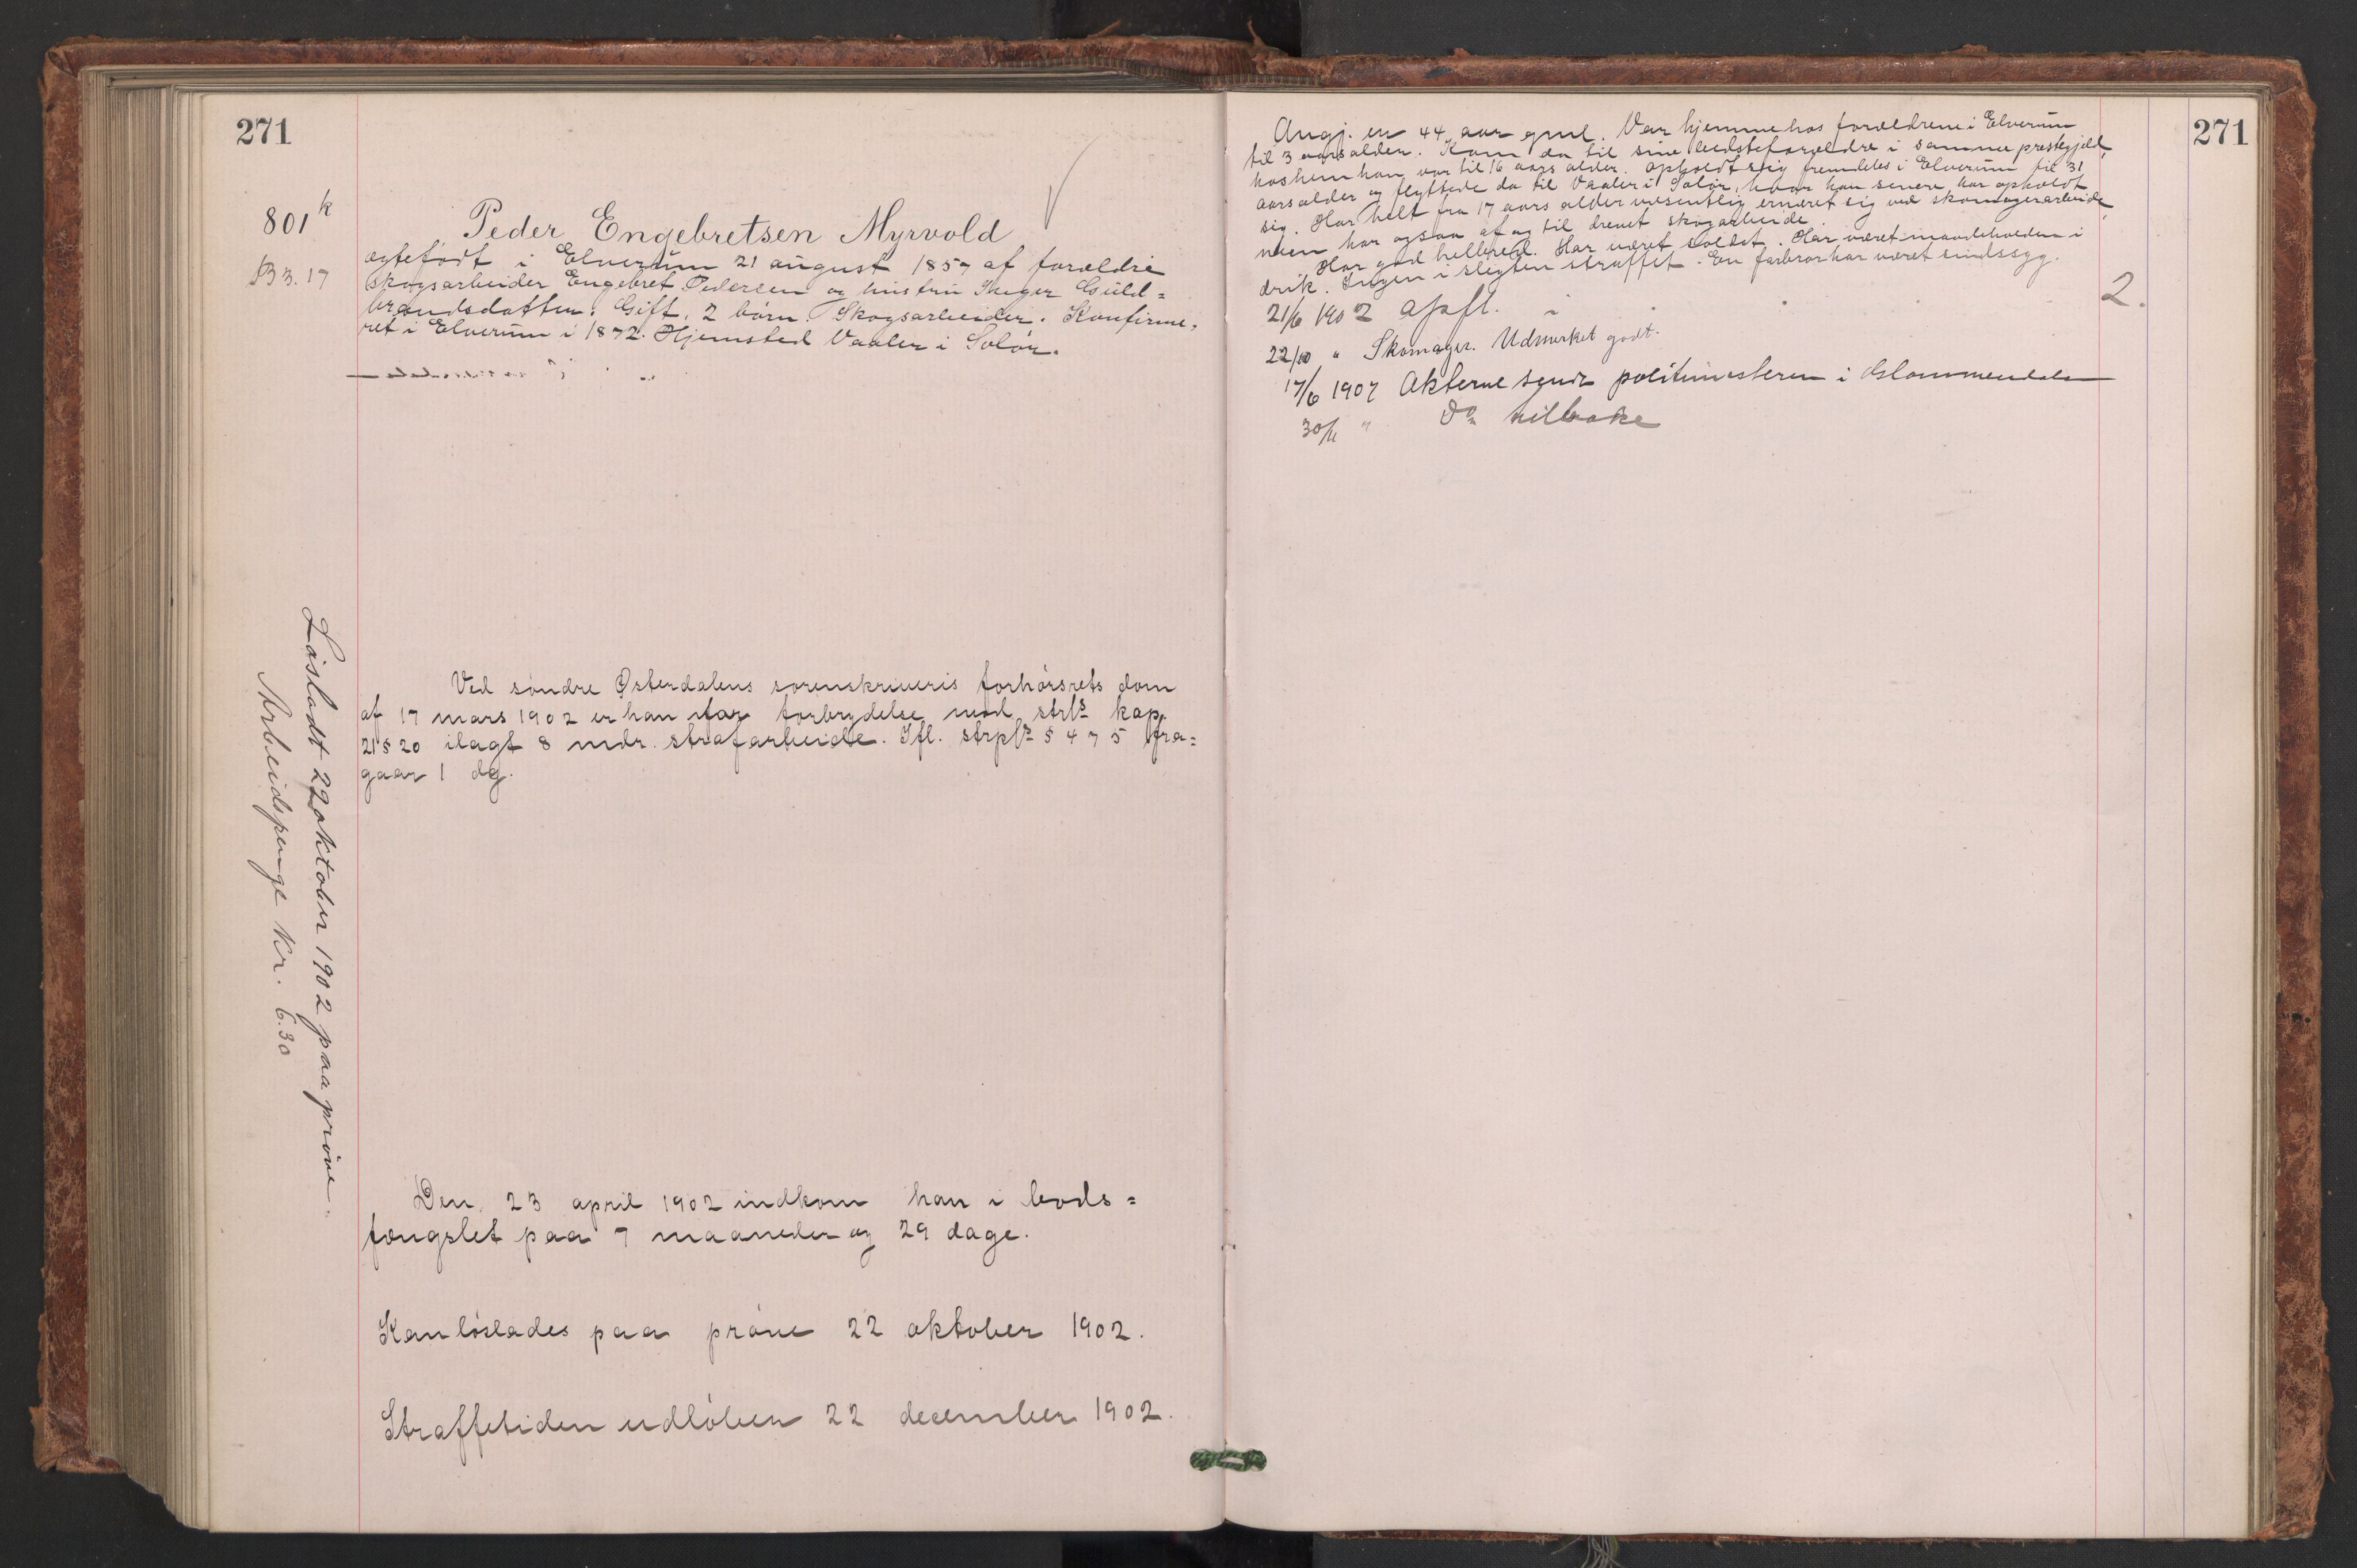 271
801 k
B 3. 17
Peder Engebretsen Myrvold
ægtefödt i Elverum 21 august 1857 af forældre
skogsarbeider Engebret Pedersen og hustru Inger Guld=
brandsdatter. Gift, 2 börn. Skogsarbeider. Konfirme,
ret i Elverum i 1872. Hjemsted Vaaler i Solör.
Ved söndre Østerdalens sorenskriveris forhörsrets dom
af 17 mars 1902 er han for forbrydelse mod strls kap.
21 § 20 ilagt 8 mdr. strafarbeide. Ifl. strpls § 475 fra=
gaar 1 dg.
Lösladt 22 oktober 1902 paa pröve.
Arbeidspenge Kr. 6.30
Den 23 april 1902 indkom han i bods=
fængslet paa 7 maaneder og 29 dage.
Kan löslades paa pröve 22 oktober 1902.
Straffetiden udlöber 22 december 1902.
271
Angj. en 44 aar gml. Var hjemme hos forældrene i Elverum
til 3 aars alder. Kom da til sine bedsteforældre i samme prestegjeld,
hos hem han var til 16 aars alder. Opholdt sig fremdeles i Elverum til 31
aars alder og flyttede da til Vaaler i Solör, hvor han senere har opholdt
sig. Har helt fra 17 aars alder væsentlig ernæret sig ved skomagerarbeide,
men har ogsaa af og til drevet skogarbeide.
Har god helbred. Har været soldat. Har været maadeholden i
drik. Ingen i slegten straffet. En farbror har været sindssyg.
2.
21/6 1902 Opfl.
22/10 " Skomager. Udmerket godt.
17/6 1907 Akterne sendt politimesteren i Glommendalen
30/11 " Do tilbake